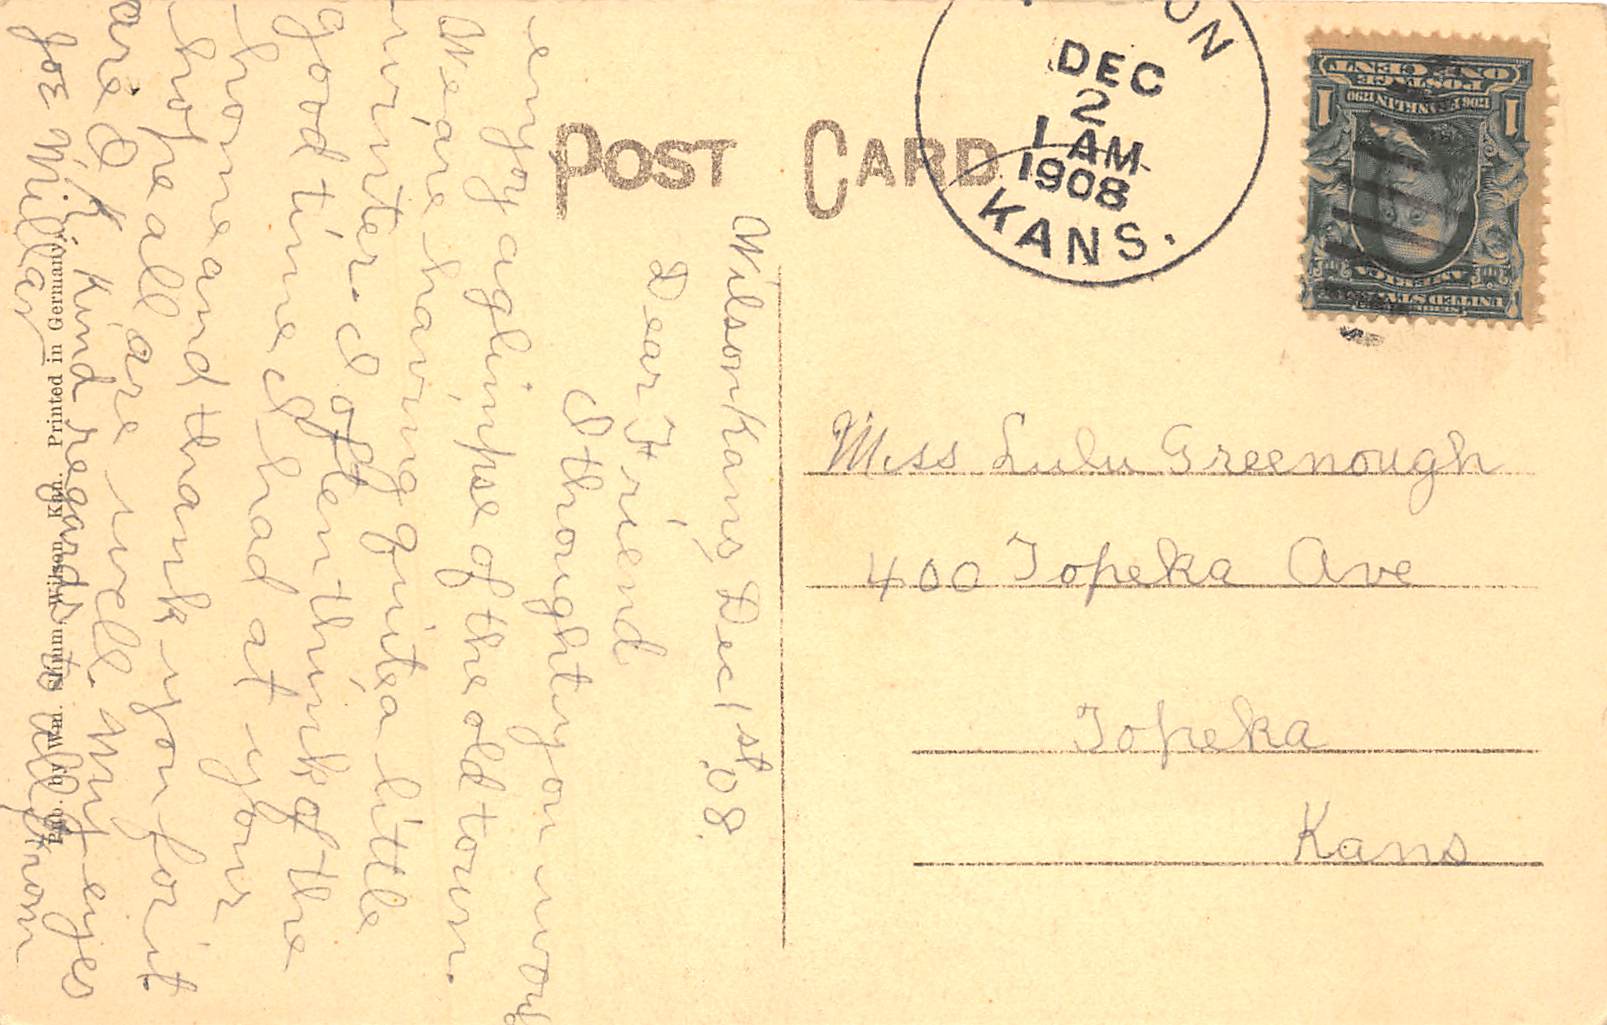 POST CARD
DEC
2
1 AM
1908
KANS.
ONE CENT
POSTAGE
1706 FRANKLIN 1790
1 1
SERIES 1902
UNITED STATES OF
AMERICA
Miss Lulu Greenough
400 Topeka Ave
Topeka
Kans
Wilson Kans, Dec 1st '08.
Dear Friend
I thought you would
enjoy a glimpse of the old town.
We are having quite a little
winter. I often think of the
good time I had at your
home and thank you for it
hope all are well. My eyes
are O.K. Kind regards to all from
Joe Millar
Pub. by Wm. Shimm, Wilson, Kan. Printed in Germany